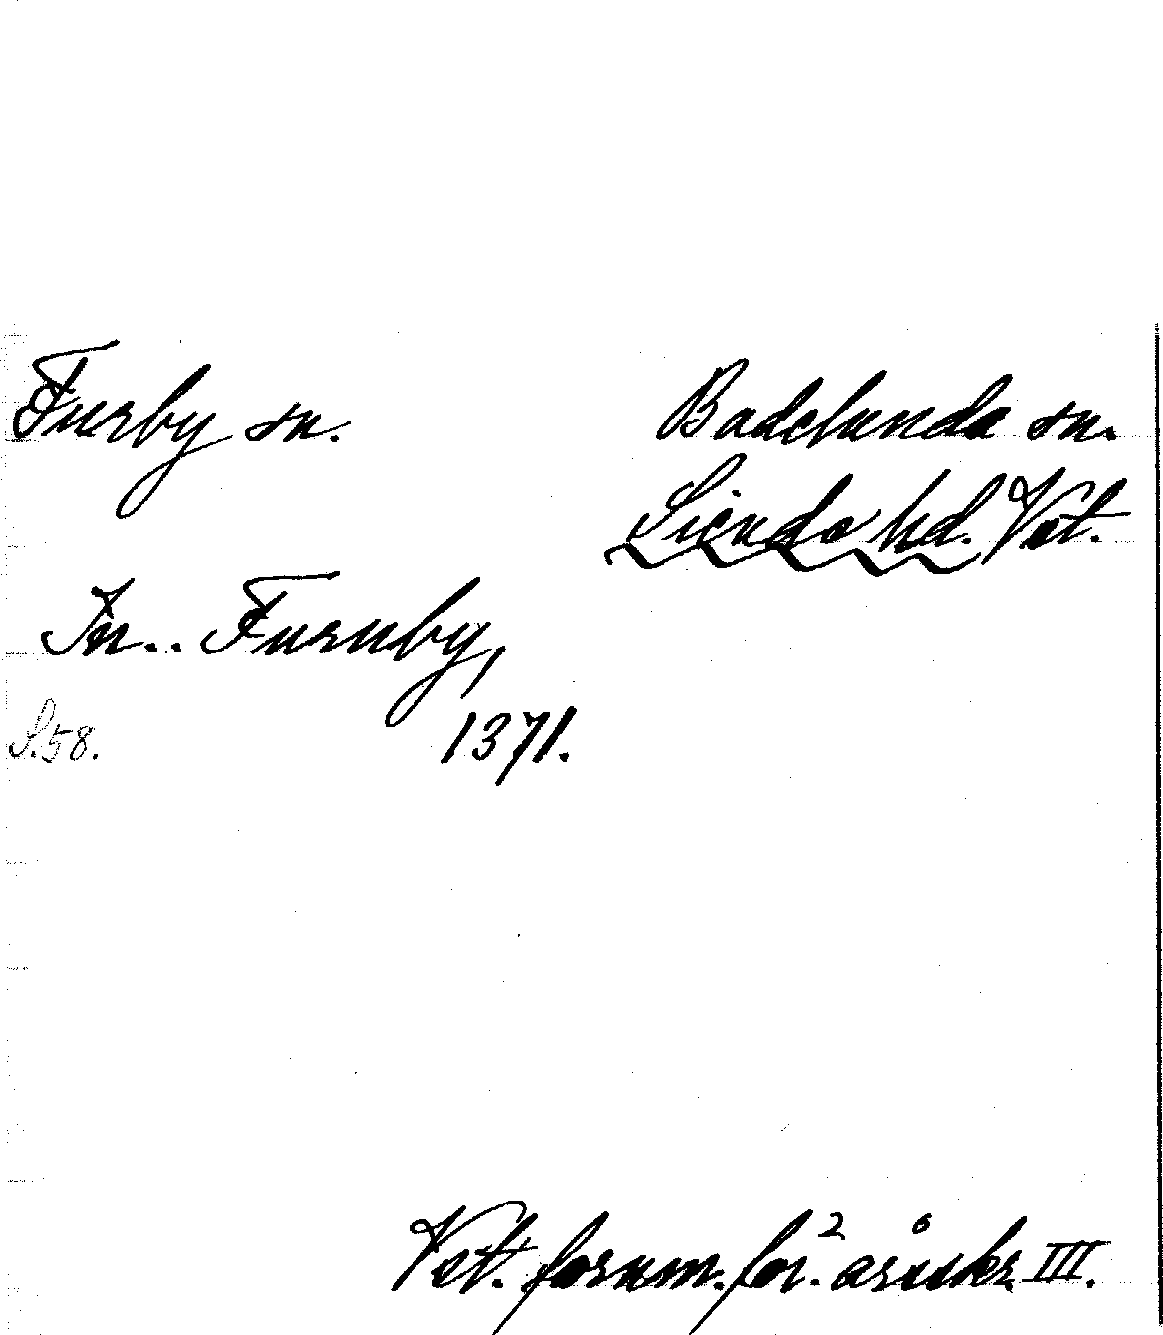 Furby sn.
Badelunda sn.
Siende hd. Vet.
In.. Furuby,
S. 58.
1371.
Vet. fornm. för.² årsskr. III.